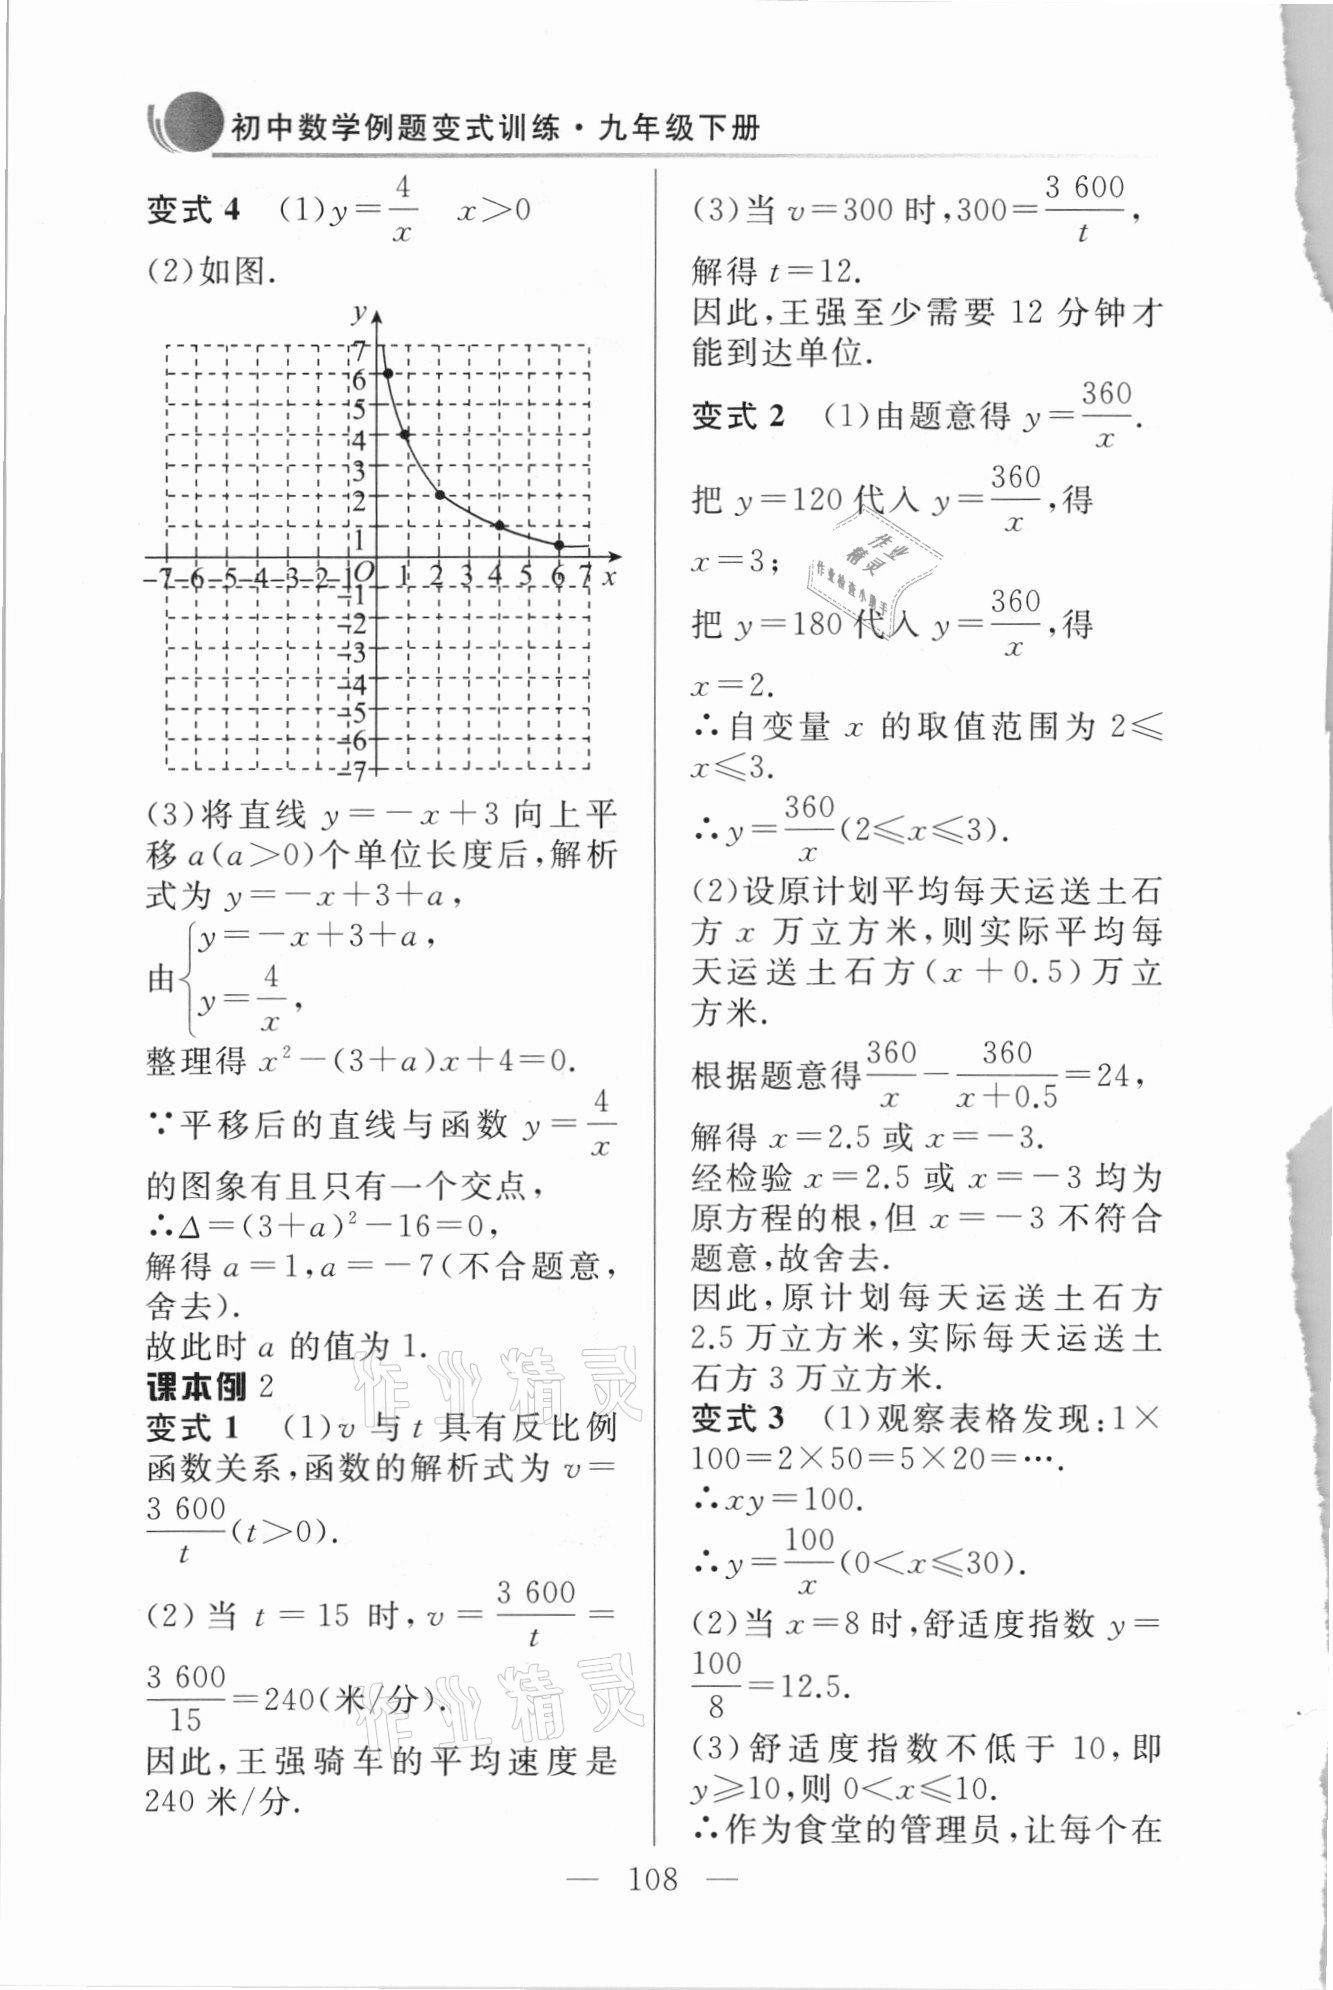 初中数学例题变式训练·九年级下册
变式 4 (1)y=4/x x>0
(2)如图.
y
7
6
5
4
3
2
1
-7 -6 -5 -4 -3 -2 -1 O 1 2 3 4 5 6 7 x
-1
-2
-3
-4
-5
-6
-7
(3)将直线 y=-x+3 向上平
移 a(a>0)个单位长度后,解析
式为 y=-x+3+a,
由{y=-x+3+a,
y=4/x,
整理得 x²-(3+a)x+4=0.
∵平移后的直线与函数 y=4/x
的图象有且只有一个交点,
∴Δ=(3+a)²-16=0,
解得 a=1,a=-7(不合题意,
舍去).
故此时 a 的值为 1.
课本例 2
变式 1 (1)v 与 t 具有反比例
函数关系,函数的解析式为 v=
3 600/t(t>0).
(2) 当 t = 15 时,v = 3 600/t =
3 600/15=240(米/分).
因此,王强骑车的平均速度是
240 米/分.
(3)当 v=300 时,300=3 600/t,
解得 t=12.
因此,王强至少需要 12 分钟才
能到达单位.
变式 2 (1)由题意得 y=360/x.
把 y=120 代入 y=360/x,得
x=3;
把 y=180 代入 y=360/x,得
x=2.
∴自变量 x 的取值范围为 2≤
x≤3.
∴y=360/x(2≤x≤3).
(2)设原计划平均每天运送土石
方 x 万立方米,则实际平均每
天运送土石方(x+0.5)万立
方米.
根据题意得360/x-360/(x+0.5)=24,
解得 x=2.5 或 x=-3.
经检验 x=2.5 或 x=-3 均为
原方程的根,但 x=-3 不符合
题意,故舍去.
因此,原计划每天运送土石方
2.5 万立方米,实际每天运送土
石方 3 万立方米.
变式 3 (1)观察表格发现:1×
100=2×50=5×20=….
∴xy=100.
∴y=100/x(0<x≤30).
(2)当 x=8 时,舒适度指数 y=
100/8=12.5.
(3)舒适度指数不低于 10,即
y≥10,则 0<x≤10.
∴作为食堂的管理员,让每个在
— 108 —
作业精灵
作业检查小助手
作业精灵
作业精灵